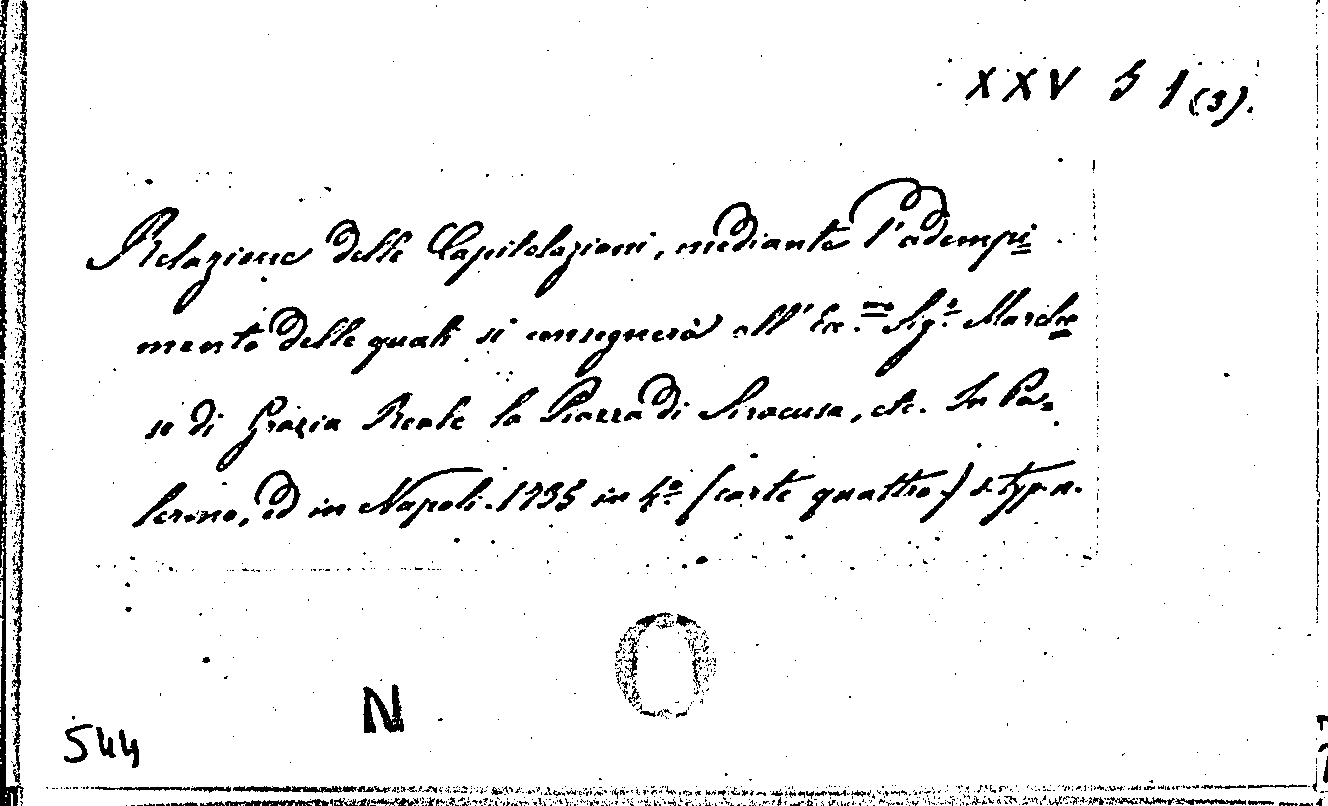 XXV 5 1 (3).
Relazione delle Capitolazioni, mediante l'adempi=
mento delle quali si consegnerà all' Ecc.mo Sig.r Marche=
se di Grazia Reale la Piazza di Siracusa, etc. In Pa=
lermo, ed in Napoli. 1735 in 4.o (carte quattro) s. typ. n.
N
544